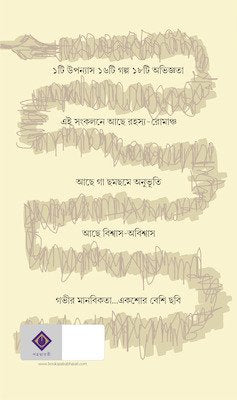 ১টি উপন্যাস ১৬টি গল্প ১৮টি অভিজ্ঞতা
এই সংকলনে আছে রহস্য-রোমাঞ্চ
আছে গা ছমছমে অনুভূতি
আছে বিশ্বাস-অবিশ্বাস
গভীর মানবিকতা...একশোর বেশি ছবি